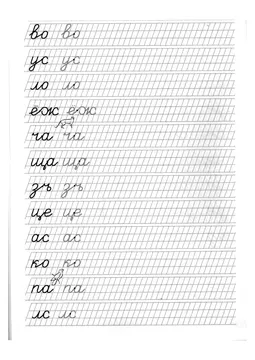 во во
ус ус
ло ло
еж еж
ча ча
ща ща
зъ зъ
це це
ас ас
ко ко
па па
лс лс